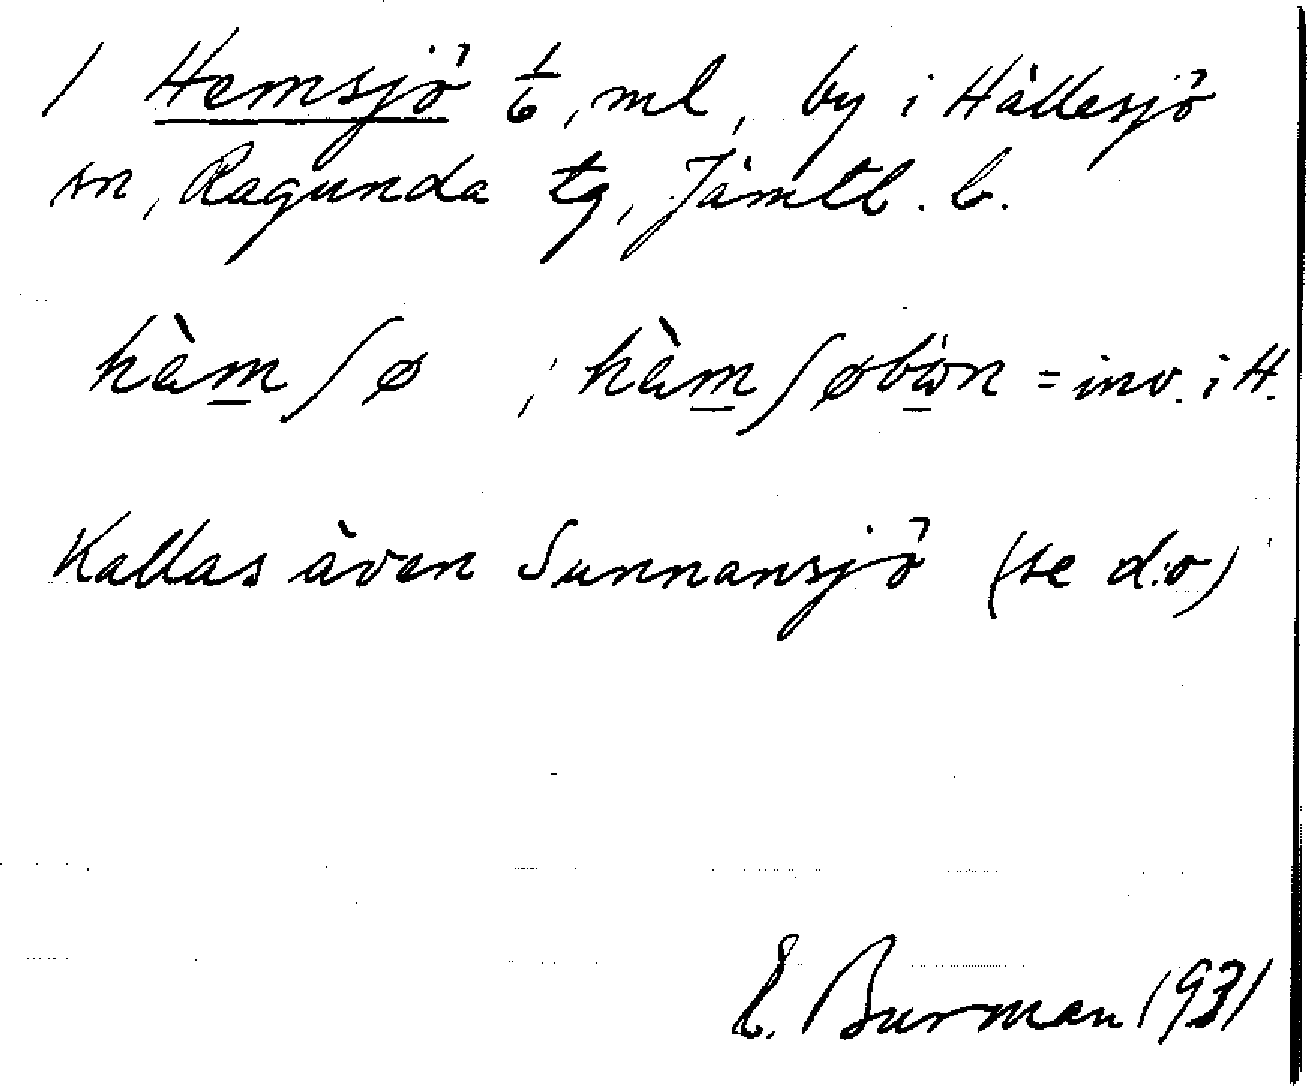 1 Hemsjö 1/6, ml, by i Hällesjö
sn, Ragunda tg, Jämtl. l.
hàm∫ø ; hàm∫øbön = inv. i H.
Kallas även Sunnansjö (se d:o)
E. Burman 1931